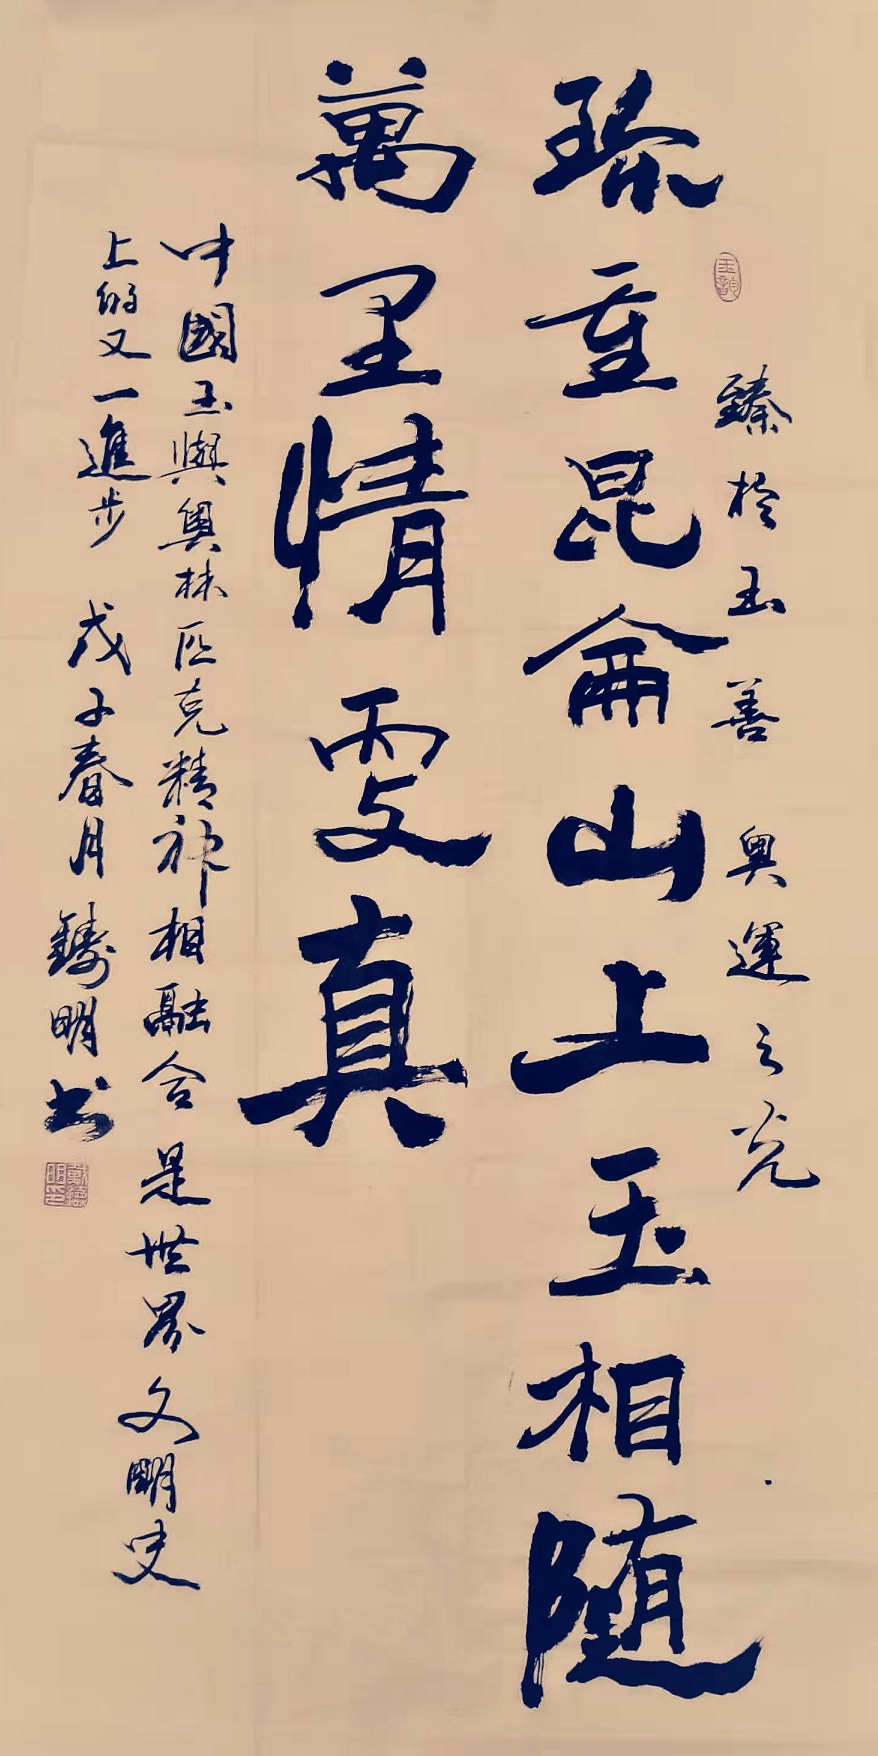 臻於玉善 奥運之光
珎重昆侖山上玉相随
萬里情更真
中國玉與奥林匹克精神相融合是世界文明史
上的又一進步 戊子春月 鑄明书